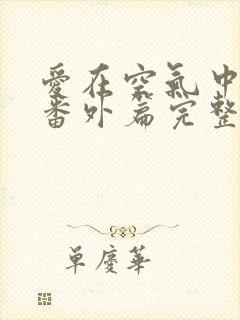 愛在空氣中
番外篇完整
單慶華